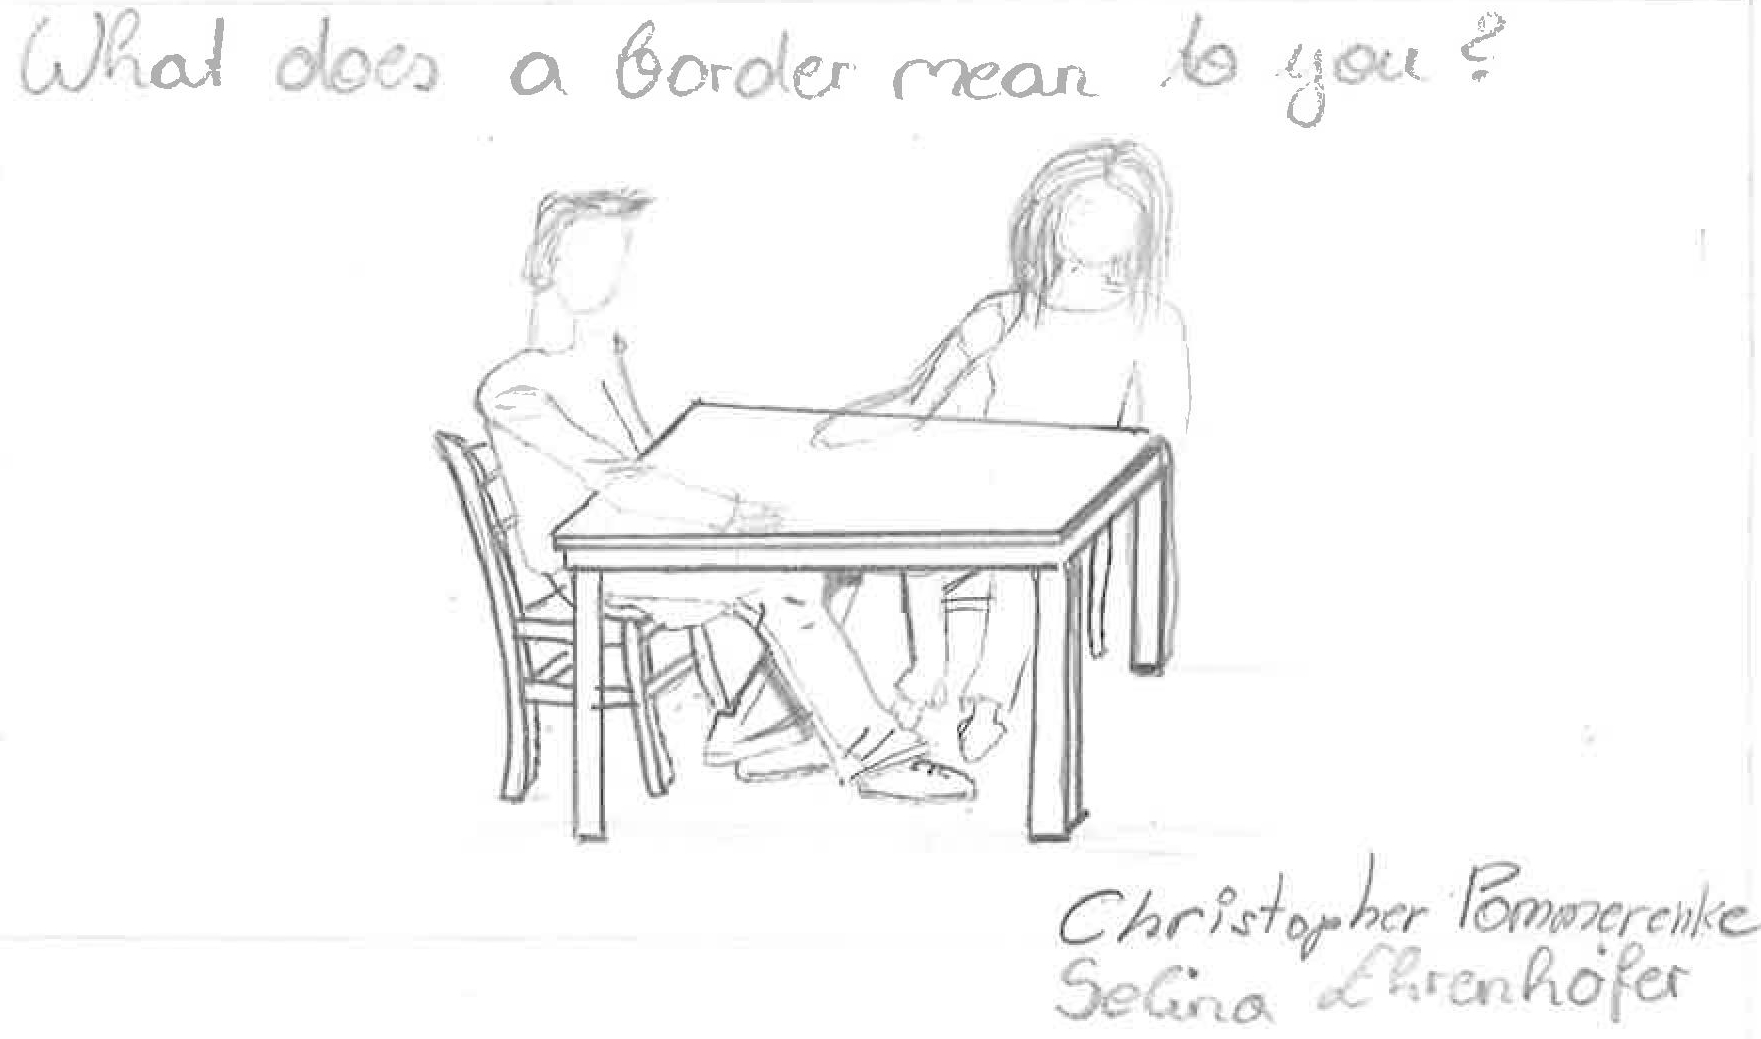 What does a border mean to you?
Christopher Pommerenke
Selina Ehrenhöfer